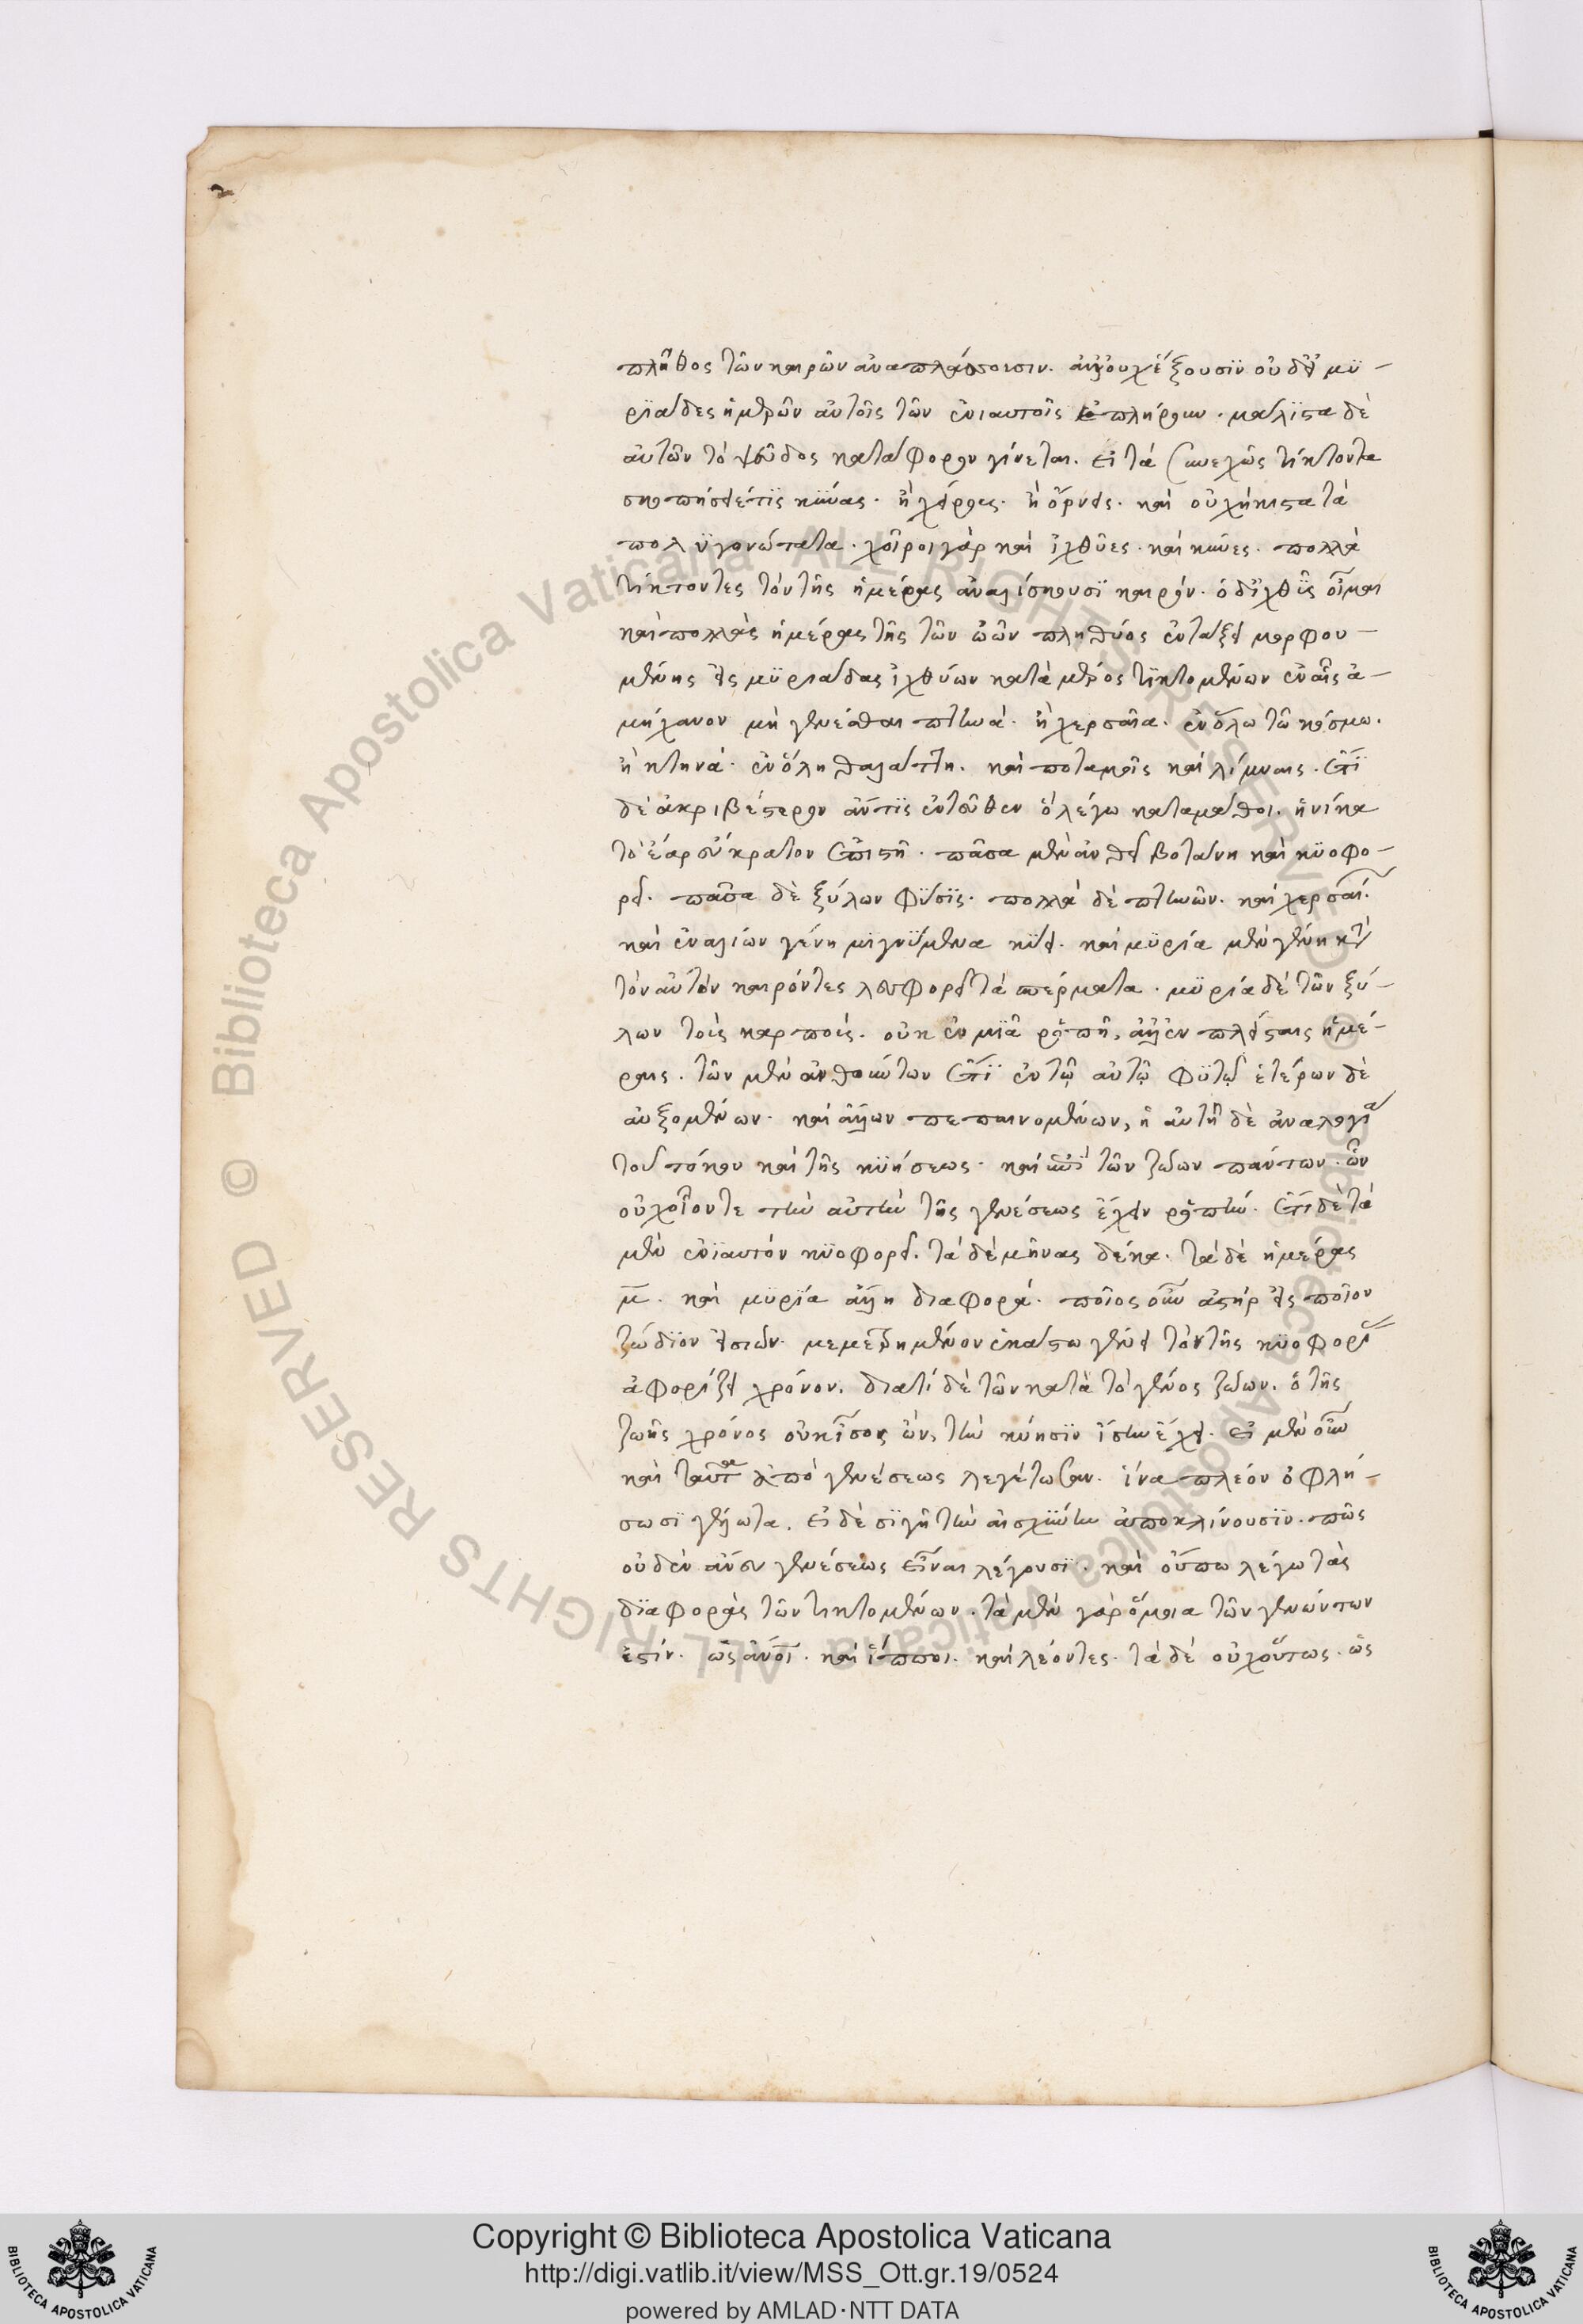 πλῆθος τῶν καιρῶν ἀναπλάττουσιν. ἀλλ' οὐχ ἕξουσϊν οὐδὲ μϋ-
ρϊάδες ἡμερῶν αὐτοῖς τῶν ἐνιαυτοῖς πλήρουν. μάλϊστα δὲ
αὐτῶν τὸ ψεῦδος κατάφορον γίνεται. εἰ τὰ συνεχῶς τίκτοντα
σκοπήσειέ τϊς κϋνας. ἢ χοίρους. ἢ ὄρνεις. καὶ οὐχ ἥκιστα τὰ
πολϋγονώτατα. χοῖροι γὰρ καὶ ἰχθῦες. καὶ κύνες. πολλὰ
τίκτοντες τὸν τῆς ἡμέρας ἀναλίσκουσϊ καιρόν. ὁ δ' ἰχθῦς οἶμαι
καὶ πολλὰς ἡμέρας τῆς τῶν ὠῶν πληθύος ἐντάξει μορφου-
μένης εἰς μϋριάδας ἰχθύων κατὰ μέρος τϊκτομένων ἐν αἷς ἀ-
μήχανον μὴ γενέσθαι πτηνά. ἢ χερσαῖα. ἐν ὅλω τῶ κόσμω.
ἢ κτηνά. ἐν ὅλη θαλάττη. καὶ ποταμοῖς καὶ λίμναις. ἔτϊ
δὲ ἀκριβέστερον ἄν τϊς ἐντεῦθεν ὃ λέγω καταμάθοι. ἡνίκα
τὸ ἔαρ εὔκρατον ἐπιστῆ. πᾶσα μὲν ἀνθεῖ βοτάνη καὶ κϋοφο-
ρεῖ. πᾶσα δὲ ξύλων φύσϊς. πολλὰ δὲ πτηνῶν. καὶ χερσαί.
καὶ ἐναλίων γένη μϊγνϋμενα κϋει. καὶ μϋρία μὲν γένη κατὰ
τὸν αὐτὸν καιρόν τελεσφορεῖ τὰ σπέρματα. μϋρία δὲ τῶν ξύ-
λων τοὺς καρποὺς. οὐκ ἐν μϊᾶ ῥοπῆ, ἀλλ' ἐν πλείσταις ἡμέ-
ραις. τῶν μὲν ἀνθούντων ἔτϊ ἐν τῶ αὐτῶ φϋτῶ ἑτέρων δὲ
αὐξομένων. καὶ ἄλλων πεπαινομένων, ἡ αὐτὴ δὲ ἀναλογία
τοῦ τόκου καὶ τῆς κϋήσεως. καὶ ἐπὶ τῶν ζώων πάντων. ὧν
οὐχ οἷόν τε τὴν αὐτὴν τῆς γενέσεως ἔχειν ῥοπήν. ἔτι δὲ τὰ
μὲν ἐνϊαυτόν κϋοφορεῖ. τὰ δὲ μῆνας δέκα. τὰ δὲ ἡμέρας
μ. καὶ μϋρϊα ἄλλη διαφορά. ποῖος οὖν ἀστὴρ εἰς ποῖον
ζώδϊον εἰσιὼν. μεμετρημένον ἑκάστω γένει τὸν τῆς κϋοφορί
ἀφορίζει χρόνον. διατί δὲ τῶν κατὰ τὸ γένος ζώων. ὁ τῆς
ζωῆς χρόνος οὐκ ἴσος ὤν, τὴν κύησϊν ἴσην ἔχει. εἰ μὲν οὖν
καὶ ταῦτα ἀπὸ γενέσεως λεγέτωσαν. ἵνα πλέον ὀφλή-
σωσϊ γέλωτα. εἰ δὲ σϊγῆ τὴν αἰσχύνην ἀποκλίνουσϊν. πῶς
οὐδὲν ἄνευ γενέσεως εἶναι λέγουσϊ. καὶ οὔπω λέγω τὰς
δϊαφορὰς τῶν τικτομένων. τὰ μὲν γὰρ ὅμοια τῶν γεννώντων
ἐστίν. ὡς ἄνοι. καὶ ἵπποι. καὶ λέοντες. τὰ δὲ οὐχ οὕτως. ὡς
Copyright © Biblioteca Apostolica Vaticana
http://digi.vatlib.it/view/MSS_Ott.gr.19/0524
powered by AMLAD·NTT DATA